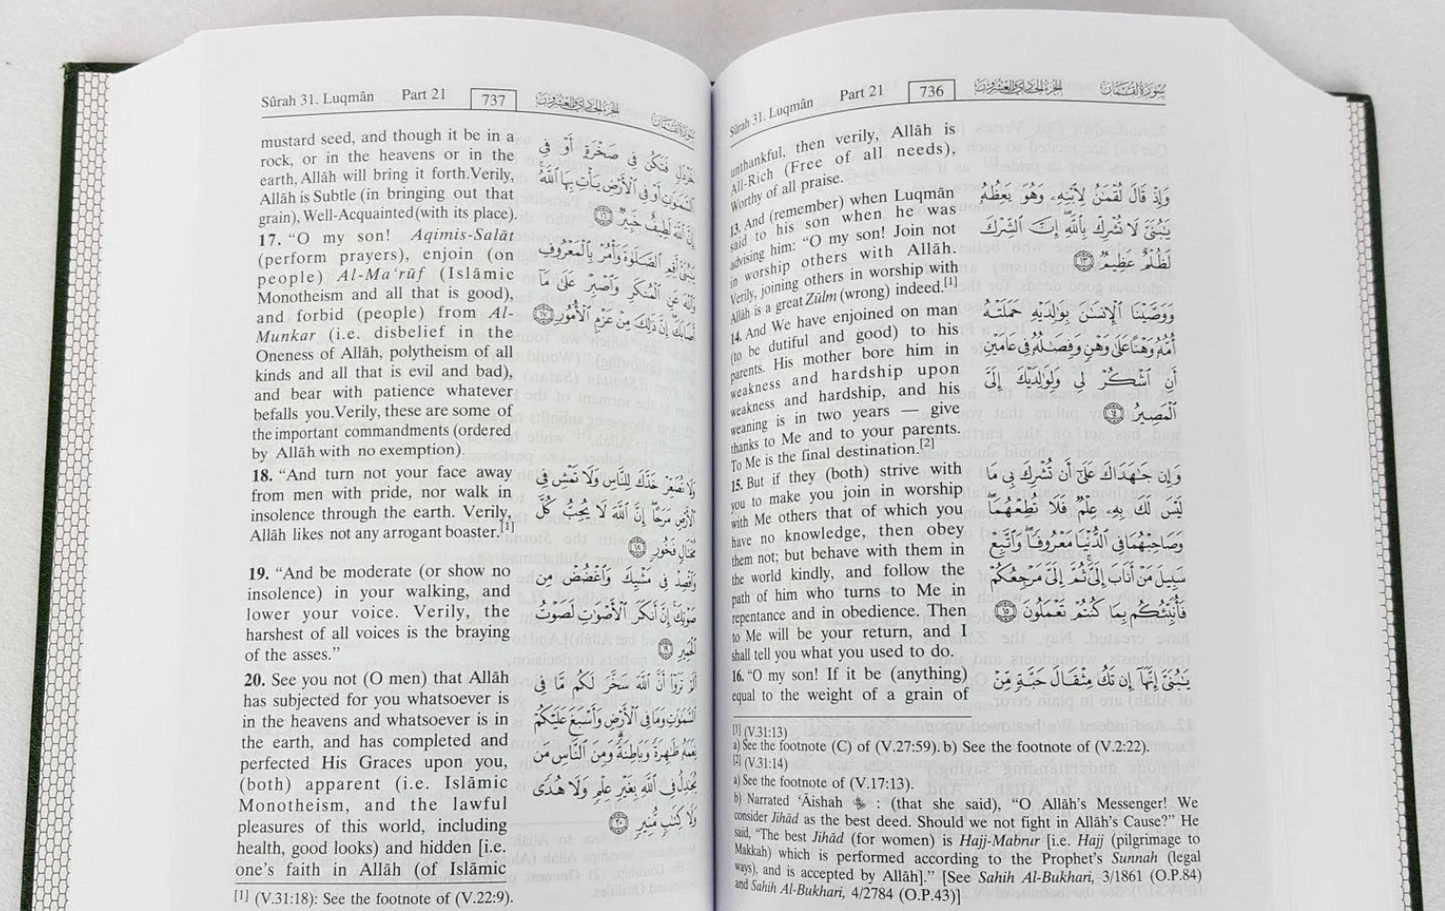 Sûrah 31. Luqmân Part 21 736 الجزء الحادي والعشرون سورة لقمان
unthankful, then verily, Allāh is
All-Rich (Free of all needs),
Worthy of all praise.
13. And (remember) when Luqmân
said to his son when he was
advising him: “O my son! Join not
in worship others with Allāh.
Verily, joining others in worship with
Allāh is a great Zūlm (wrong) indeed.[1]
14. And We have enjoined on man
(to be dutiful and good) to his
parents. His mother bore him in
weakness and hardship upon
weakness and hardship, and his
weaning is in two years — give
thanks to Me and to your parents.
To Me is the final destination.[2]
15. But if they (both) strive with
you to make you join in worship
with Me others that of which you
have no knowledge, then obey
them not; but behave with them in
the world kindly, and follow the
path of him who turns to Me in
repentance and in obedience. Then
to Me will be your return, and I
shall tell you what you used to do.
16. “O my son! If it be (anything)
equal to the weight of a grain of
وَإِذْ قَالَ لُقْمَٰنُ لِٱبْنِهِۦ وَهُوَ يَعِظُهُۥ
يَٰبُنَىَّ لَا تُشْرِكْ بِٱللَّهِ ۖ إِنَّ ٱلشِّرْكَ
لَظُلْمٌ عَظِيمٌ ١٣
وَوَصَّيْنَا ٱلْإِنسَٰنَ بِوَٰلِدَيْهِ حَمَلَتْهُ
أُمُّهُۥ وَهْنًا عَلَىٰ وَهْنٍ وَفِصَٰلُهُۥ فِى عَامَيْنِ
أَنِ ٱشْكُرْ لِى وَلِوَٰلِدَيْكَ إِلَىَّ
ٱلْمَصِيرُ ١٤
وَإِن جَٰهَدَاكَ عَلَىٰٓ أَن تُشْرِكَ بِى مَا
لَيْسَ لَكَ بِهِۦ عِلْمٌ فَلَا تُطِعْهُمَا ۖ
وَصَاحِبْهُمَا فِى ٱلدُّنْيَا مَعْرُوفًا ۖ وَٱتَّبِعْ
سَبِيلَ مَنْ أَنَابَ إِلَىَّ ۚ ثُمَّ إِلَىَّ مَرْجِعُكُمْ
فَأُنَبِّئُكُم بِمَا كُنتُمْ تَعْمَلُونَ ١٥
يَٰبُنَىَّ إِنَّهَآ إِن تَكُ مِثْقَالَ حَبَّةٍ مِّنْ
[1] (V.31:13)
a) See the footnote (C) of (V.27:59). b) See the footnote of (V.2:22).
[2] (V.31:14)
a) See the footnote of (V.17:13).
b) Narrated ‘Āishah : (that she said), “O Allāh’s Messenger! We
consider Jihād as the best deed. Should we not fight in Allāh’s Cause?” He
said, “The best Jihād (for women) is Hajj-Mabrur [i.e. Hajj (pilgrimage to
Makkah) which is performed according to the Prophet’s Sunnah (legal
ways), and is accepted by Allāh].” [See Sahih Al-Bukhari, 3/1861 (O.P.84)
and Sahih Al-Bukhari, 4/2784 (O.P.43)]
Sûrah 31. Luqmân Part 21 737 الجزء الحادي والعشرون سورة لقمان
mustard seed, and though it be in a
rock, or in the heavens or in the
earth, Allāh will bring it forth.Verily,
Allāh is Subtle (in bringing out that
grain), Well-Acquainted (with its place).
17. “O my son! Aqimis-Salāt
(perform prayers), enjoin (on
people) Al-Ma‘rūf (Islāmic
Monotheism and all that is good),
and forbid (people) from Al-
Munkar (i.e. disbelief in the
Oneness of Allāh, polytheism of all
kinds and all that is evil and bad),
and bear with patience whatever
befalls you.Verily, these are some of
the important commandments (ordered
by Allāh with no exemption).
18. “And turn not your face away
from men with pride, nor walk in
insolence through the earth. Verily,
Allāh likes not any arrogant boaster.[1]
19. “And be moderate (or show no
insolence) in your walking, and
lower your voice. Verily, the
harshest of all voices is the braying
of the asses.”
20. See you not (O men) that Allāh
has subjected for you whatsoever is
in the heavens and whatsoever is in
the earth, and has completed and
perfected His Graces upon you,
(both) apparent (i.e. Islāmic
Monotheism, and the lawful
pleasures of this world, including
health, good looks) and hidden [i.e.
one’s faith in Allāh (of Islāmic
خَرْدَلٍ فَتَكُن فِى صَخْرَةٍ أَوْ فِى
ٱلسَّمَٰوَٰتِ أَوْ فِى ٱلْأَرْضِ يَأْتِ بِهَا ٱللَّهُ ۚ
إِنَّ ٱللَّهَ لَطِيفٌ خَبِيرٌ ١٦
يَٰبُنَىَّ أَقِمِ ٱلصَّلَوٰةَ وَأْمُرْ بِٱلْمَعْرُوفِ
وَٱنْهَ عَنِ ٱلْمُنكَرِ وَٱصْبِرْ عَلَىٰ مَآ
أَصَابَكَ ۖ إِنَّ ذَٰلِكَ مِنْ عَزْمِ ٱلْأُمُورِ ١٧
وَلَا تُصَعِّرْ خَدَّكَ لِلنَّاسِ وَلَا تَمْشِ فِى
ٱلْأَرْضِ مَرَحًا ۖ إِنَّ ٱللَّهَ لَا يُحِبُّ كُلَّ
مُخْتَالٍ فَخُورٍ ١٨
وَٱقْصِدْ فِى مَشْيِكَ وَٱغْضُضْ مِن
صَوْتِكَ ۚ إِنَّ أَنكَرَ ٱلْأَصْوَٰتِ لَصَوْتُ
ٱلْحَمِيرِ ١٩
أَلَمْ تَرَوْا۟ أَنَّ ٱللَّهَ سَخَّرَ لَكُم مَّا فِى
ٱلسَّمَٰوَٰتِ وَمَا فِى ٱلْأَرْضِ وَأَسْبَغَ عَلَيْكُمْ
نِعَمَهُۥ ظَٰهِرَةً وَبَاطِنَةً ۗ وَمِنَ ٱلنَّاسِ مَن
يُجَٰدِلُ فِى ٱللَّهِ بِغَيْرِ عِلْمٍ وَلَا هُدًى
وَلَا كِتَٰبٍ مُّنِيرٍ ٢٠
[1] (V.31:18): See the footnote of (V.22:9).